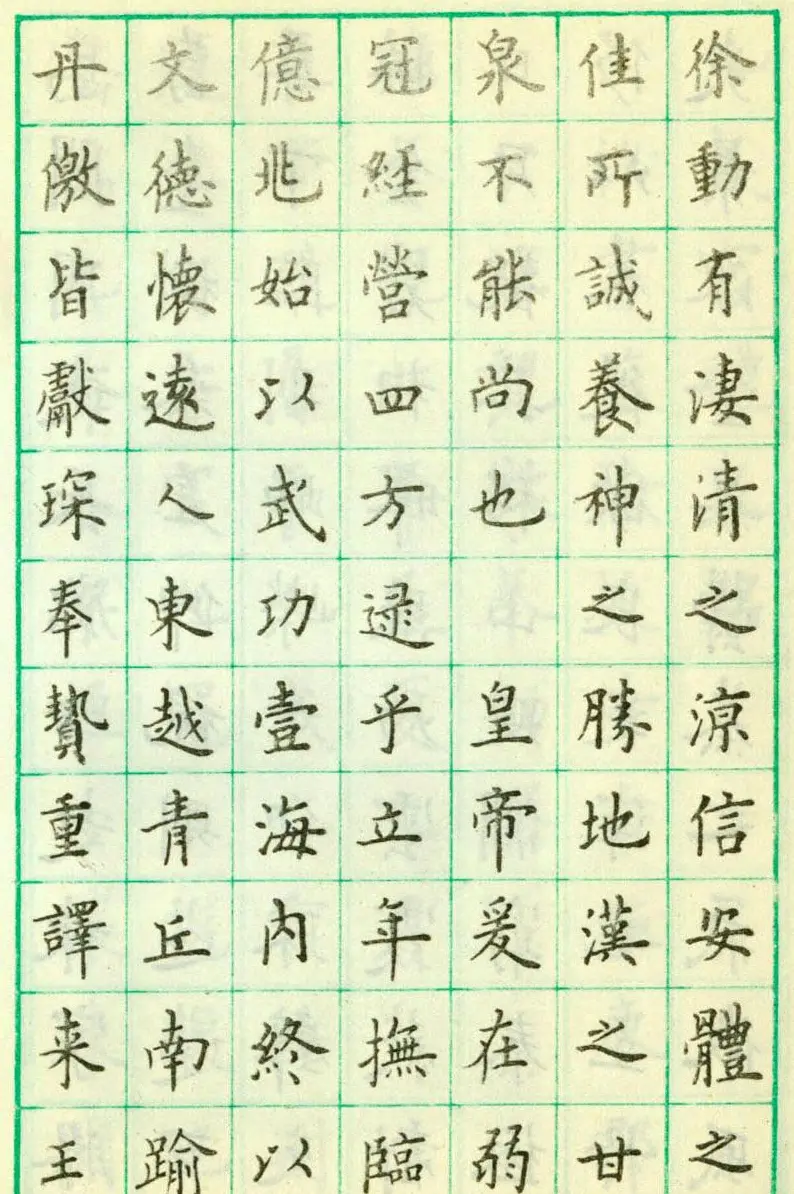 徐動有淒清之涼信安體之
佳所誠養神之勝地漢之甘
泉不能尚也 皇帝爰在弱
冠経營四方逯乎立年撫臨
億兆始以武功壹海內終以
文德懷遠人東越青丘南踰
丹徼皆獻琛奉贄重譯来王